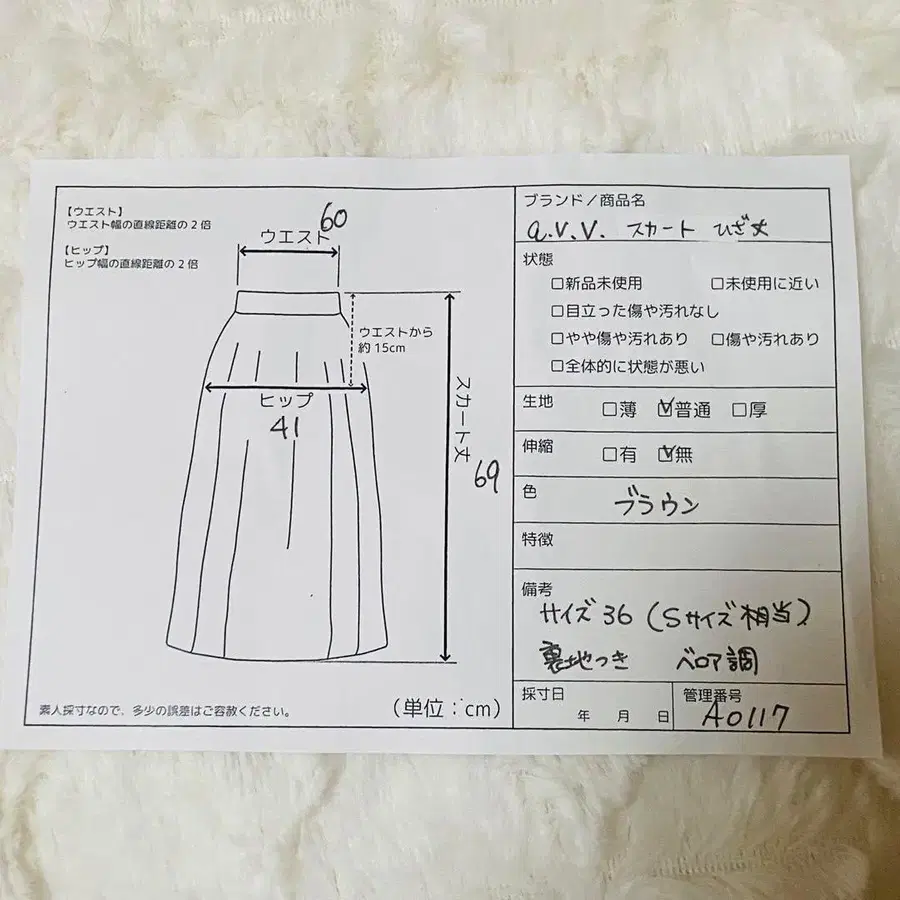 【ウエスト】
ウエスト幅の直線距離の2倍
【ヒップ】
ヒップ幅の直線距離の2倍
60
ウエスト
ウエストから
約15cm
ヒップ
41
スカート丈
69
素人採寸なので、多少の誤差はご容赦ください。
(単位:cm)
ブランド/商品名
a.v.v. スカート ひざ丈
状態
□新品未使用 □未使用に近い
□目立った傷や汚れなし
□やや傷や汚れあり □傷や汚れあり
□全体的に状態が悪い
生地 □薄 ☑普通 □厚
伸縮 □有 ☑無
色
ブラウン
特徴
備考
サイズ36(Sサイズ相当)
裏地つき ベロア調
採寸日
年 月 日
管理番号
A0117